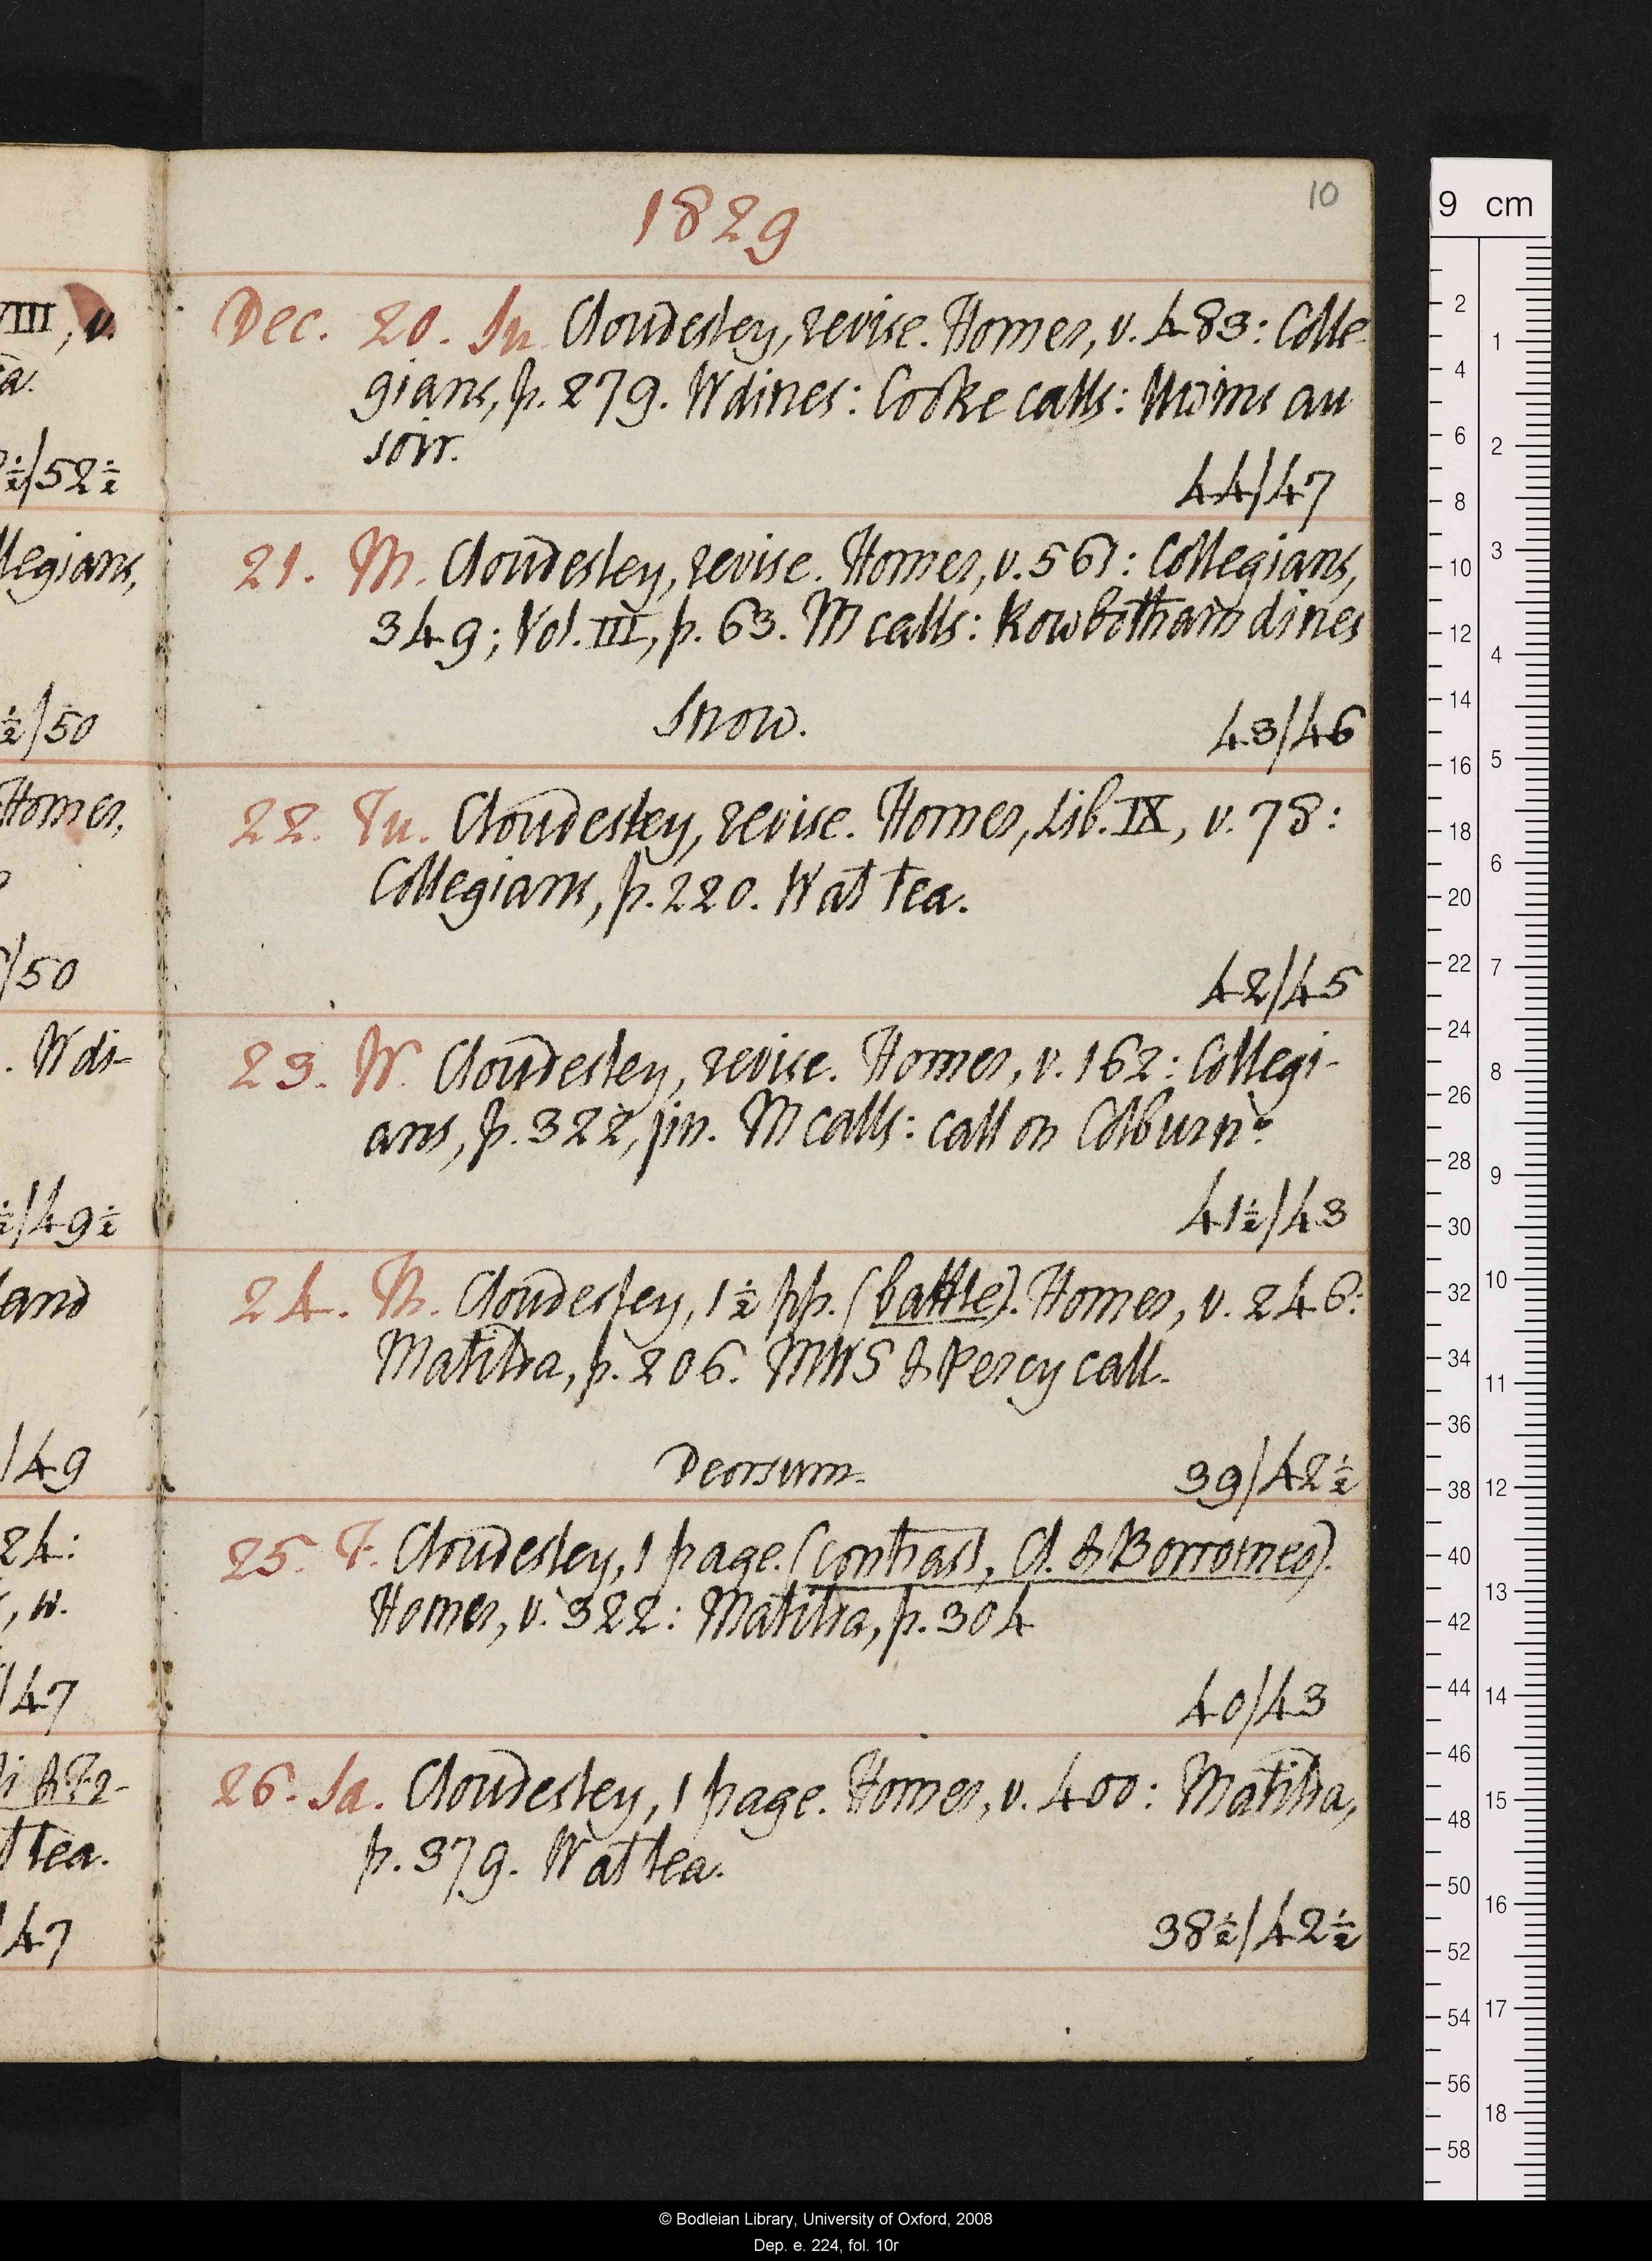 1829
10
Dec. 20. Su. Cloudesley, revise. Homer, v. 483: Colle-
gians, p. 279. W dines: Cooke calls: Moins au
soir.
44/47
21. M. Cloudesley, revise. Homer, v. 561: Collegians,
349; Vol. III, p. 63. M calls: Rowbotham dines
Snow.
43/46
22. Tu. Cloudesley, revise. Homer, Lib. IX, v. 78:
Collegians, p. 220. W at tea.
42/45
23. W. Cloudesley, revise. Homer, v. 162: Collegi-
ans, p. 322, fin. M calls: call on Colburn
41½/43
24. Th. Cloudesley, 1½ pp. (battle). Homer, v. 246:
Matilda, p. 206. MWS & Percy call.
Deorsum.
39/42½
25. F. Cloudesley, 1 page. (contrast, Cl. & Borromeo).
Homer, v. 322: Matilda, p. 304
40/43
26. Sa. Cloudesley, 1 page. Homer, v. 400: Matilda,
p. 379. W at tea.
38½/42½
VIII, v.
a.
½/52½
llegians,
½/50
Homer,
/50
. W di-
½/49½
and
/49
24:
, v.
/47
i & Fr-
t tea.
/47
9 cm
2
4
6
8
10
12
14
16
18
20
22
24
26
28
30
32
34
36
38
40
42
44
46
48
50
52
54
56
58
1
2
3
4
5
6
7
8
9
10
11
12
13
14
15
16
17
18
© Bodleian Library, University of Oxford, 2008
Dep. e. 224, fol. 10r